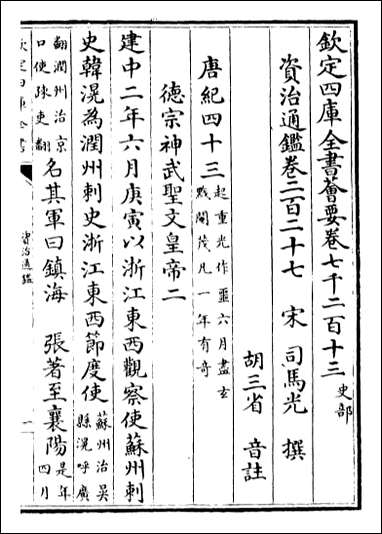 欽定四庫全書薈要卷七千二百十三 史部
資治通鑑卷二百二十七 宋 司馬光 撰
胡三省 音註
唐紀四十三 起重光作噩六月盡玄
黓閹茂凡一年有奇
德宗神武聖文皇帝二
建中二年六月庚寅以浙江東西觀察使蘇州刺
史韓滉為潤州刺史浙江東西節度使 蘇州治吳
縣滉呼廣
翻潤州治京
口使疎吏翻 名其軍曰鎮海 張著至襄陽 是年
四月
欽定四庫全書
資治通鑑
一